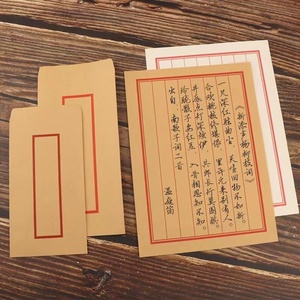 《新添声杨柳枝词》
一尺深红胜曲尘 天生旧物不如新。
合欢桃核终堪恨 里许元来别有人。
井底点灯深烛伊 共郎长行莫围棋。
玲珑骰子安红豆 入骨相思知不知
出自 南歌子词二首
温庭筠